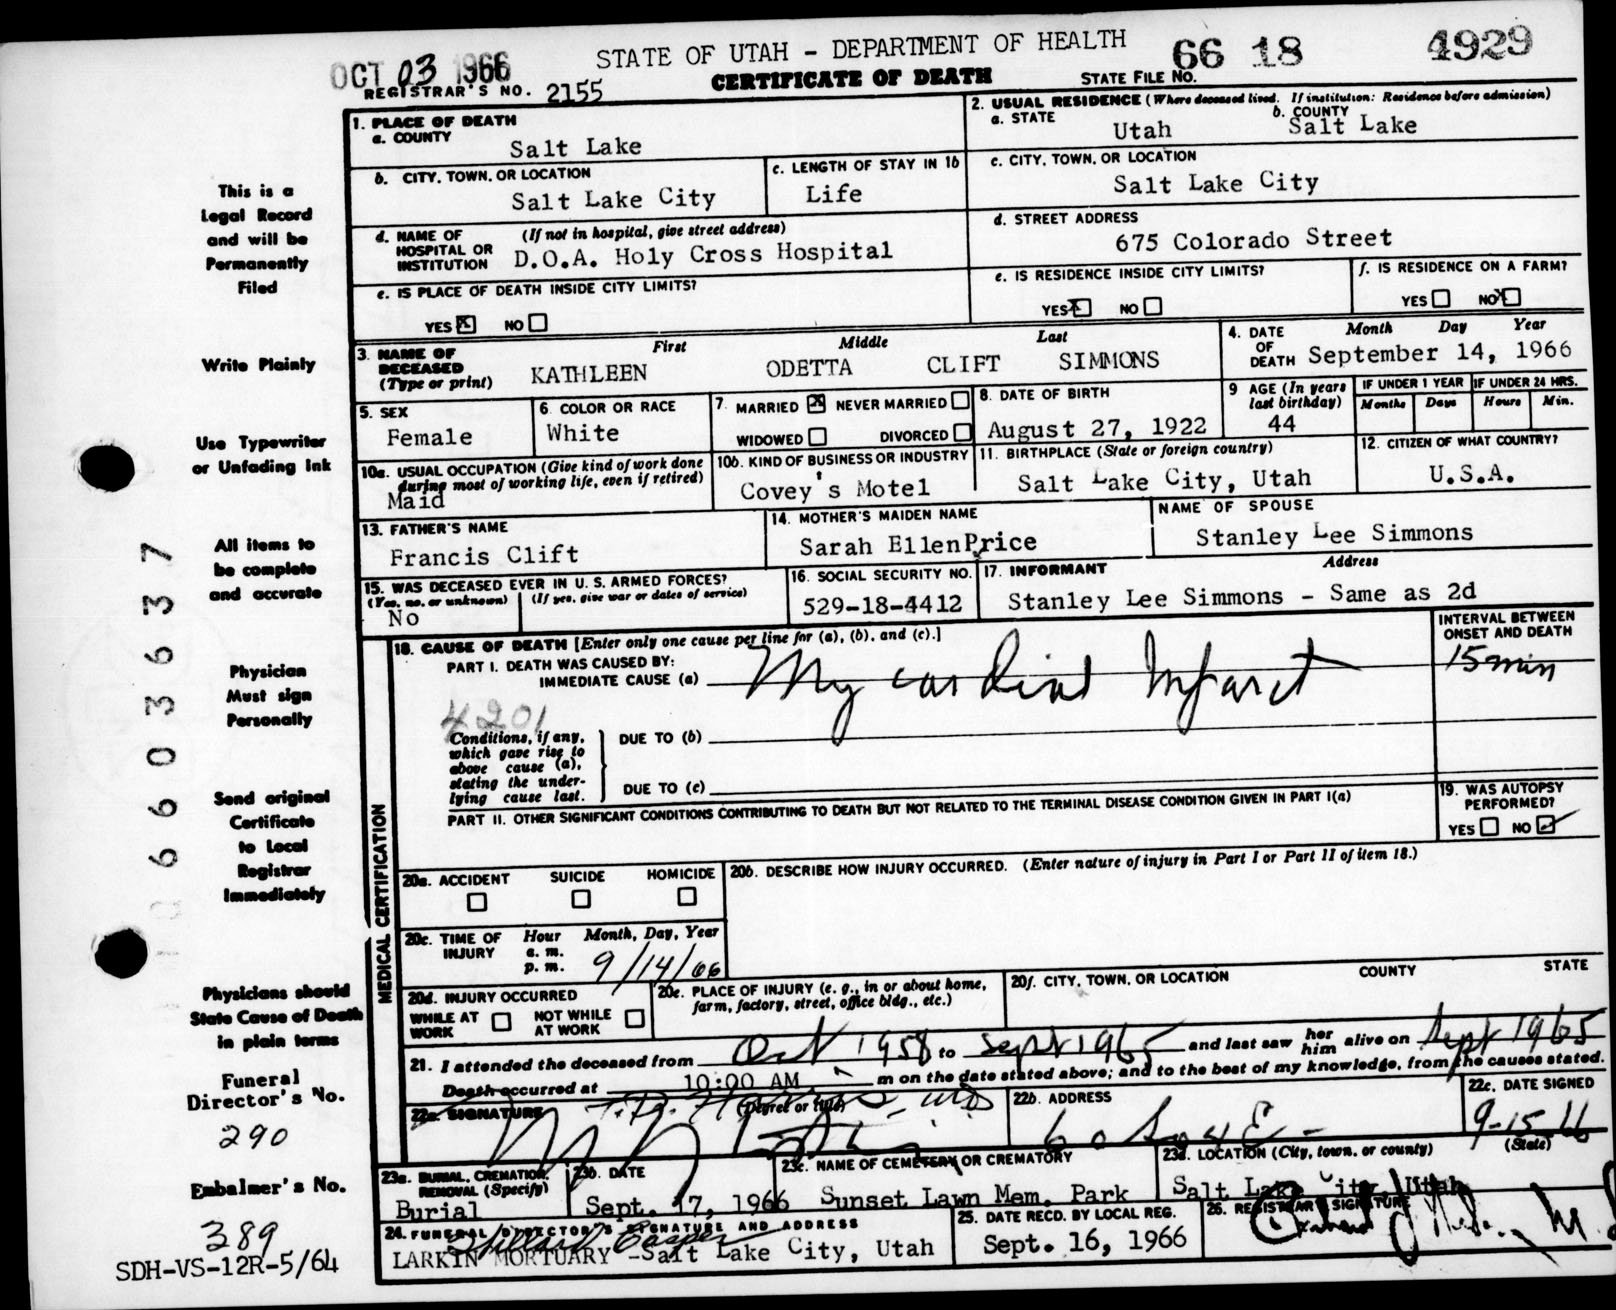 OCT 03 1966
STATE OF UTAH - DEPARTMENT OF HEALTH
66 18 4929
REGISTRAR'S NO. 2155
CERTIFICATE OF DEATH
STATE FILE NO.
1. PLACE OF DEATH
a. COUNTY
Salt Lake
2. USUAL RESIDENCE (Where deceased lived. If institution: Residence before admission)
a. STATE
Utah
b. COUNTY
Salt Lake
b. CITY, TOWN, OR LOCATION
Salt Lake City
c. LENGTH OF STAY IN 1b
Life
c. CITY, TOWN, OR LOCATION
Salt Lake City
d. NAME OF HOSPITAL OR INSTITUTION
(If not in hospital, give street address)
D.O.A. Holy Cross Hospital
d. STREET ADDRESS
675 Colorado Street
e. IS PLACE OF DEATH INSIDE CITY LIMITS?
YES X NO
e. IS RESIDENCE INSIDE CITY LIMITS?
YES X NO
f. IS RESIDENCE ON A FARM?
YES NO X
3. NAME OF DECEASED (Type or print)
First Middle Last
KATHLEEN ODETTA CLIFT SIMMONS
4. DATE OF DEATH
Month Day Year
September 14, 1966
5. SEX
Female
6. COLOR OR RACE
White
7. MARRIED X NEVER MARRIED
WIDOWED DIVORCED
8. DATE OF BIRTH
August 27, 1922
9 AGE (In years last birthday)
44
IF UNDER 1 YEAR
Months Days
IF UNDER 24 HRS.
Hours Min.
10a. USUAL OCCUPATION (Give kind of work done during most of working life, even if retired)
Maid
10b. KIND OF BUSINESS OR INDUSTRY
Covey's Motel
11. BIRTHPLACE (State or foreign country)
Salt Lake City, Utah
12. CITIZEN OF WHAT COUNTRY?
U.S.A.
13. FATHER'S NAME
Francis Clift
14. MOTHER'S MAIDEN NAME
Sarah EllenPrice
NAME OF SPOUSE
Stanley Lee Simmons
15. WAS DECEASED EVER IN U. S. ARMED FORCES?
(Yes, no, or unknown) (If yes, give war or dates of service)
No
16. SOCIAL SECURITY NO.
529-18-4412
17. INFORMANT Address
Stanley Lee Simmons - Same as 2d
18. CAUSE OF DEATH [Enter only one cause per line for (a), (b), and (c).]
INTERVAL BETWEEN ONSET AND DEATH
PART I. DEATH WAS CAUSED BY:
IMMEDIATE CAUSE (a) Myocardial Infarct
15 min
4201
Conditions, if any, which gave rise to above cause (a), stating the underlying cause last.
DUE TO (b)
DUE TO (c)
PART II. OTHER SIGNIFICANT CONDITIONS CONTRIBUTING TO DEATH BUT NOT RELATED TO THE TERMINAL DISEASE CONDITION GIVEN IN PART I(a)
19. WAS AUTOPSY PERFORMED?
YES NO ✓
MEDICAL CERTIFICATION
20a. ACCIDENT SUICIDE HOMICIDE
20b. DESCRIBE HOW INJURY OCCURRED. (Enter nature of injury in Part I or Part II of item 18.)
20c. TIME OF INJURY
Hour Month, Day, Year
a. m.
p. m.
9/14/66
20d. INJURY OCCURRED
WHILE AT WORK NOT WHILE AT WORK
20e. PLACE OF INJURY (e. g., in or about home, farm, factory, street, office bldg., etc.)
20f. CITY, TOWN, OR LOCATION COUNTY STATE
21. I attended the deceased from Oct 1958 to Sept 1965 and last saw her him alive on Sept 1965
Death occurred at 10:00 AM m on the date stated above; and to the best of my knowledge, from the causes stated.
22a. SIGNATURE (Degree or title)
22b. ADDRESS
22c. DATE SIGNED
9-15-66
23a. BURIAL, CREMATION, REMOVAL (Specify)
Burial
23b. DATE
Sept. 17, 1966
23c. NAME OF CEMETERY OR CREMATORY
Sunset Lawn Mem. Park
23d. LOCATION (City, town, or county) (State)
Salt Lake City, Utah
24. FUNERAL DIRECTOR'S SIGNATURE AND ADDRESS
LARKIN MORTUARY -Salt Lake City, Utah
25. DATE RECD. BY LOCAL REG.
Sept. 16, 1966
26. REGISTRAR'S SIGNATURE
This is a
Legal Record
and will be
Permanently
Filed
Write Plainly
Use Typewriter
or Unfading Ink
All items to
be complete
and accurate
Physician
Must sign
Personally
Send original
Certificate
to Local
Registrar
Immediately
Physicians should
State Cause of Death
in plain terms
Funeral
Director's No.
290
Embalmer's No.
389
SDH-VS-12R-5/64
6603637